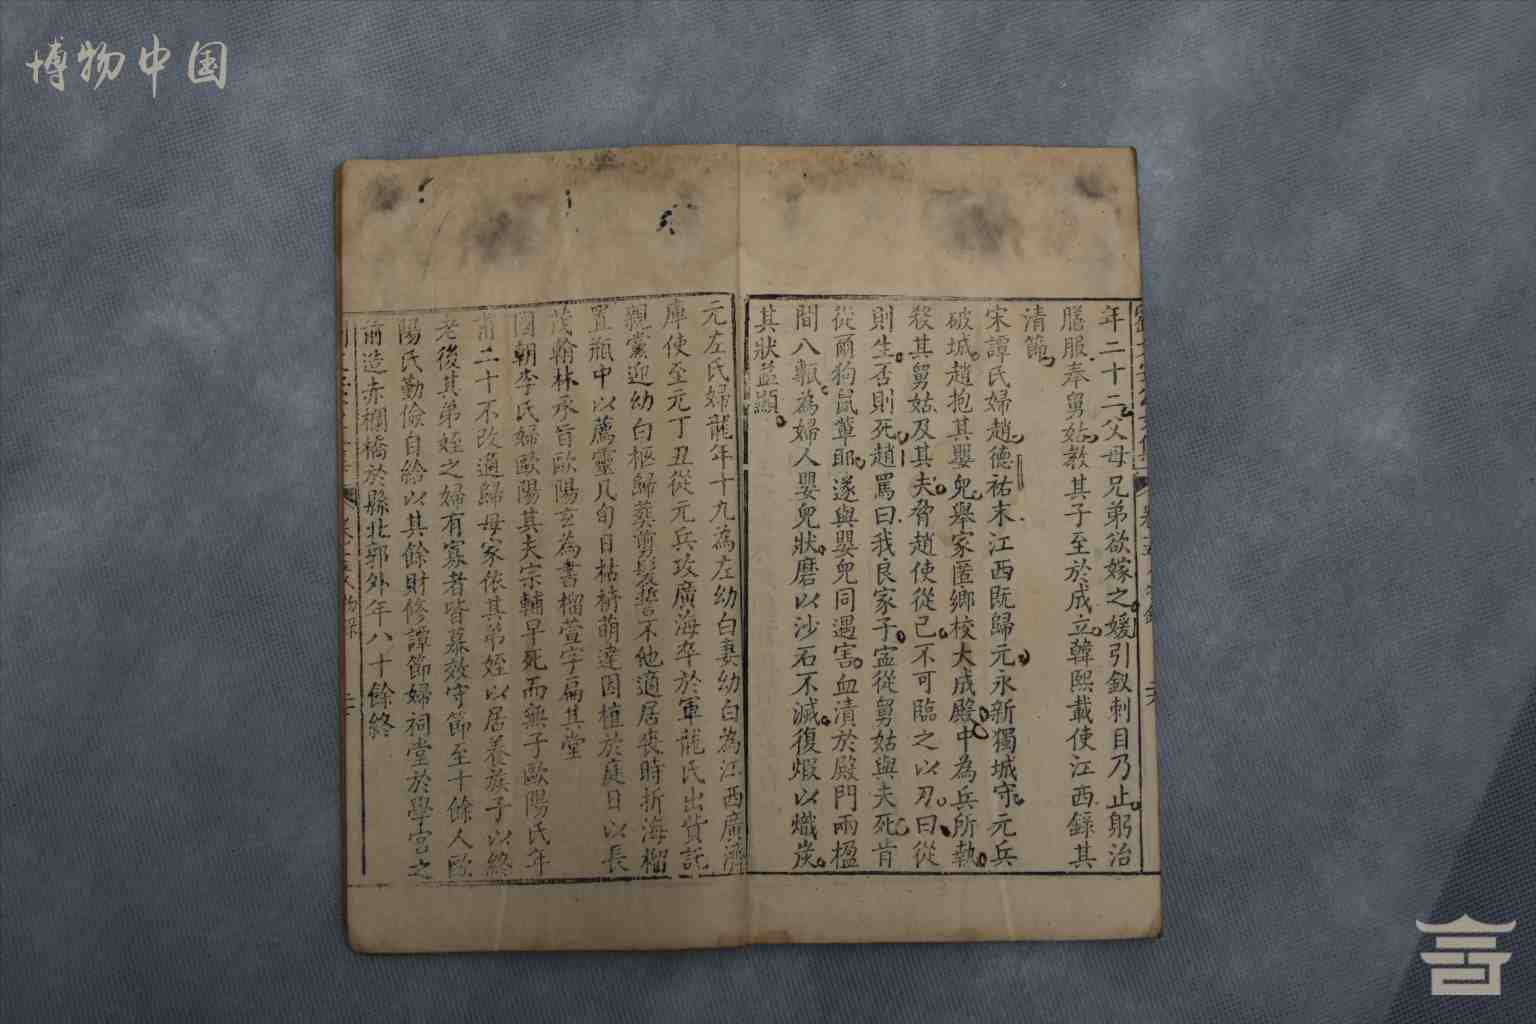 博物中国
年二十二父母兄弟欲嫁之媛引釵刺目乃止躬治
膳服奉舅姑教其子至於成立韓熙載使江西錄其
清節
宋譚氏婦趙德祐末江西既歸元永新獨城守元兵
破城趙抱其嬰兒舉家匿鄉校大成殿中為兵所執
殺其舅姑及其夫脅趙使從己不可臨之以刃曰從
則生否則死趙罵曰我良家子寍從舅姑與夫死肯
從爾狗鼠軰耶遂與嬰兒同遇害血漬於殿門兩楹
間八甎為婦人嬰兒狀磨以沙石不滅復煆以熾炭
其狀益顯
元左氏婦龍年十九為左幼白妻幼白為江西廣濟
庫使至元丁丑從元兵攻廣海卒於軍龍氏出貨託
親黨迎幼白柩歸葬剪髮誓不他適居喪時折海榴
置瓶中以薦靈几旬日枯樹萌達因植於庭日以長
茂翰林承旨歐陽玄為書榴萱字扁其堂
國朝李氏婦歐陽其夫宗輔早死而無子歐陽氏年
甫二十不改適歸母家依其弟姪以居養族子以終
老後其弟姪之婦有寡者皆慕效守節至十餘人歐
陽氏勤儉自給以其餘財修譚節婦祠堂於學宮之
前造赤欄橋於縣北郭外年八十餘終